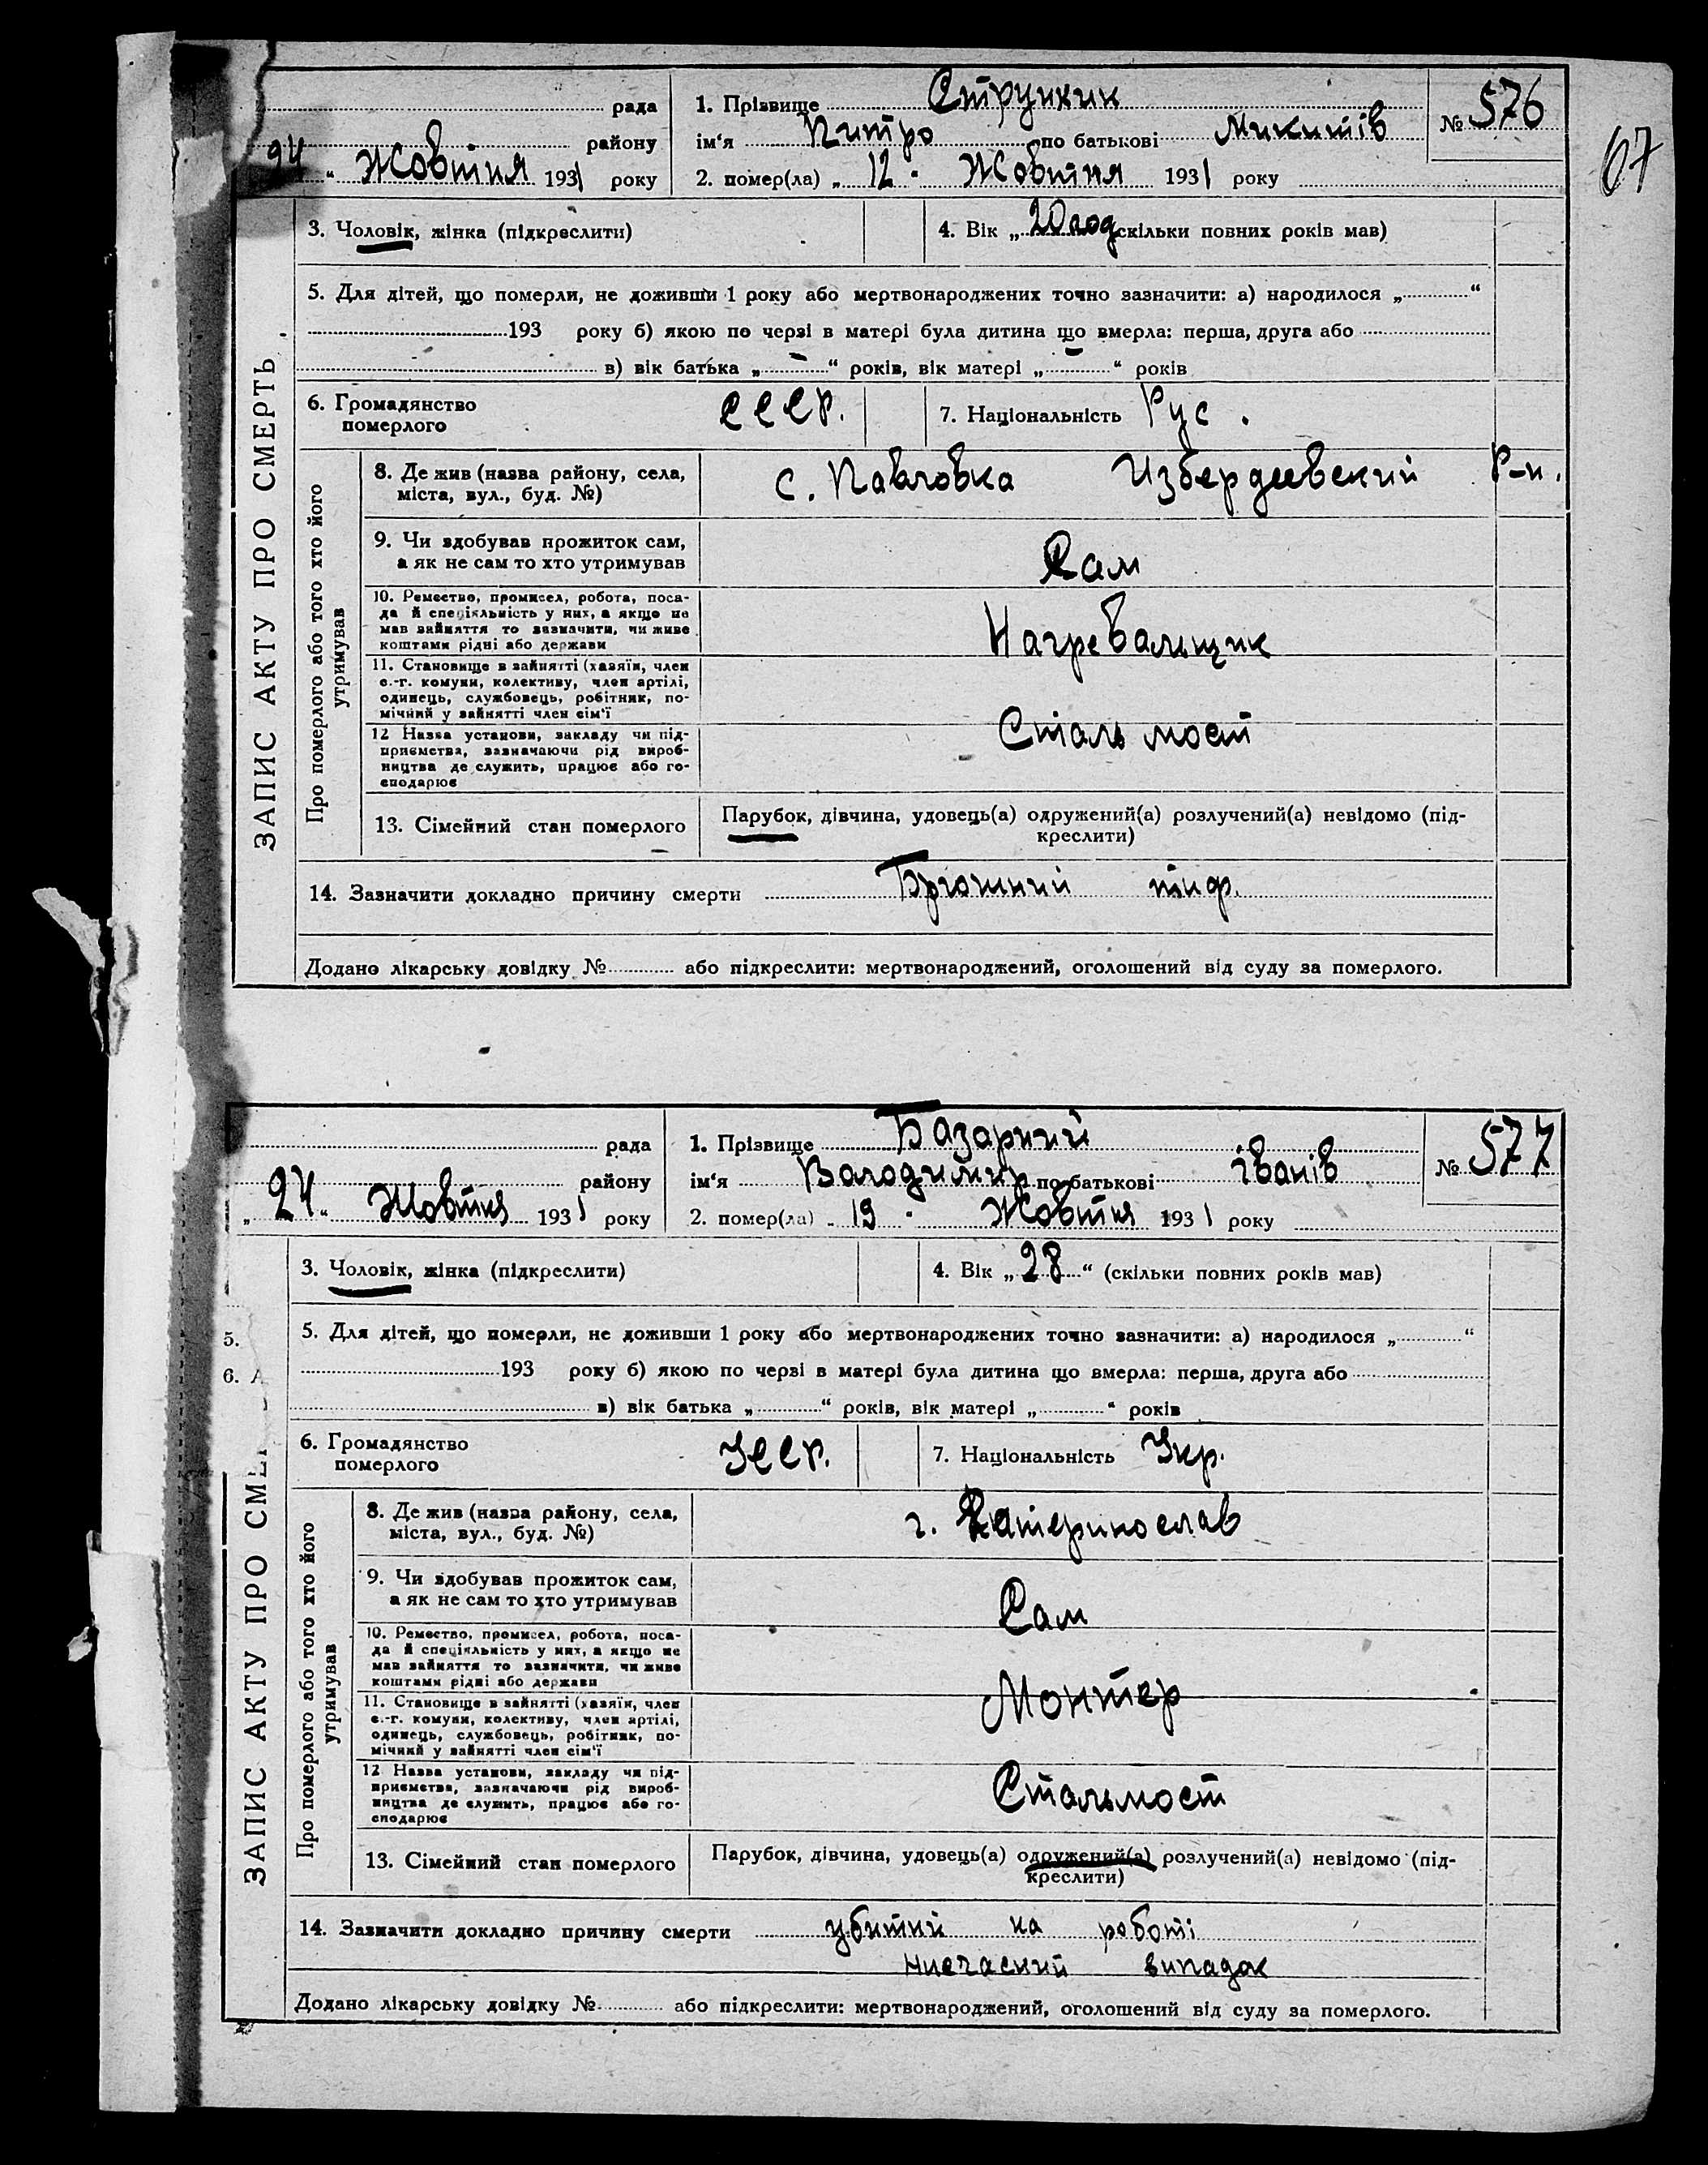 67
рада
району
„24“ Жовтня 1931 року
1. Прізвище Стрункин
ім‘я Питро по батькові Микитів
2. помер(ла) „12“ Жовтня 1931 року
№ 576
ЗАПИС АКТУ ПРО СМЕРТЬ
3. Чоловік, жінка (підкреслити)
4. Вік „20 год скільки повних років мав)
5. Для дітей, що померли, не доживши 1 року або мертвонароджених точно зазначити: а) народилося „ “
193 року б) якою по черзі в матері була дитина що вмерла: перша, друга або
в) вік батька „ “ років, вік матері „ “ років
6. Громадянство
померлого
СССР.
7. Національність Рус.
Про померлого або того хто його
утримував
8. Де жив (назва району, села,
міста, вул., буд. №)
с. Павловка Избердеевский Р-н.
9. Чи здобував прожиток сам,
а як не сам то хто утримував
Сам
10. Ремество, промисел, робота, поса-
да й спеціяльність у них, а якщо не
мав зайняття то зазначити, чи живе
коштами рідні або держави
Нагревальщик
11. Становище в зайнятті (хазяїн, член
с.-г. комуни, колективу, член артілі,
одинець, службовець, робітник, по-
мічний у зайнятті член сім‘ї
12 Назва установи, закладу чи під-
приємства, зазначаючи рід вироб-
ництва де служить, працює або го-
сподарює
Сталь мост
13. Сімейний стан померлого
Парубок, дівчина, удовець(а) одружений(а) розлучений(а) невідомо (під-
креслити)
14. Зазначити докладно причину смерти Брюшний тиф.
Додано лікарську довідку № або підкреслити: мертвонароджений, оголошений від суду за померлого.
рада
району
„24“ Жовтня 1931 року
1. Прізвище Базарний
ім‘я Володимир по батькові іванів
2. помер(ла) „19“ Жовтня 1931 року
№ 577
5.
6. А
ЗАПИС АКТУ ПРО СМЕР
3. Чоловік, жінка (підкреслити)
4. Вік „28“ (скільки повних років мав)
5. Для дітей, що померли, не доживши 1 року або мертвонароджених точно зазначити: а) народилося „ “
193 року б) якою по черзі в матері була дитина що вмерла: перша, друга або
в) вік батька „ “ років, вік матері „ “ років
6. Громадянство
померлого
УССР.
7. Національність Укр.
Про померлого або того хто його
утримував
8. Де жив (назва району, села,
міста, вул., буд. №)
г. Катеринослав
9. Чи здобував прожиток сам,
а як не сам то хто утримував
Сам
10. Ремество, промисел, робота, поса-
да й спеціяльність у них, а якщо не
мав зайняття то зазначити, чи живе
коштами рідні або держави
Монтер
11. Становище в зайнятті (хазяїн, член
с.-г. комуни, колективу, член артілі,
одинець, службовець, робітник, по-
мічний у зайнятті член сім‘ї
12 Назва установи, закладу чи під-
приємства, зазначаючи рід вироб-
ництва де служить, працює або го-
сподарює
Стальмост
13. Сімейний стан померлого
Парубок, дівчина, удовець(а) одружений(а) розлучений(а) невідомо (під-
креслити)
14. Зазначити докладно причину смерти убитий на роботі
нисчасний випадок
Додано лікарську довідку № або підкреслити: мертвонароджений, оголошений від суду за померлого.